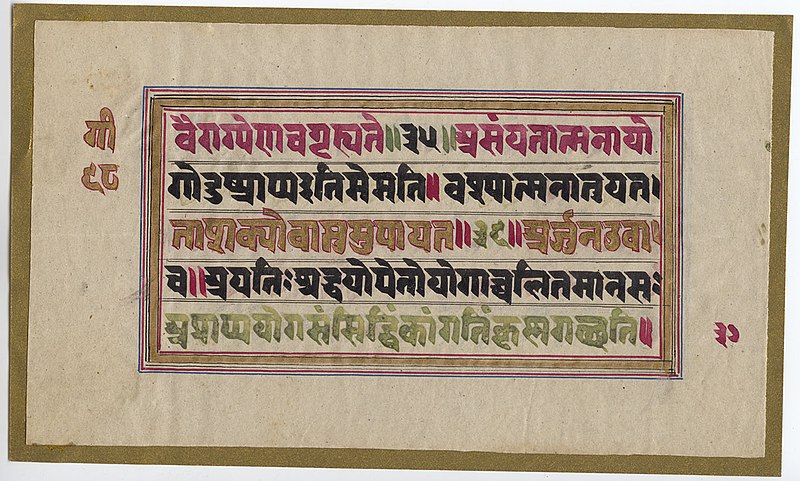 गी
वैराग्येणचगृह्यते॥३५॥असंयतात्मनायो
गोदुष्प्राप्यइतिमेमति॥वश्यात्मनातुयत।
ताशक्योवाप्तुमुपायत॥३६॥अर्जुनउवा
च॥अयतिःश्रद्धयोपेतोयोगाच्चलितमानसः
अप्राप्ययोगसंसिद्धिंकांगतिंकृष्णगच्छति॥